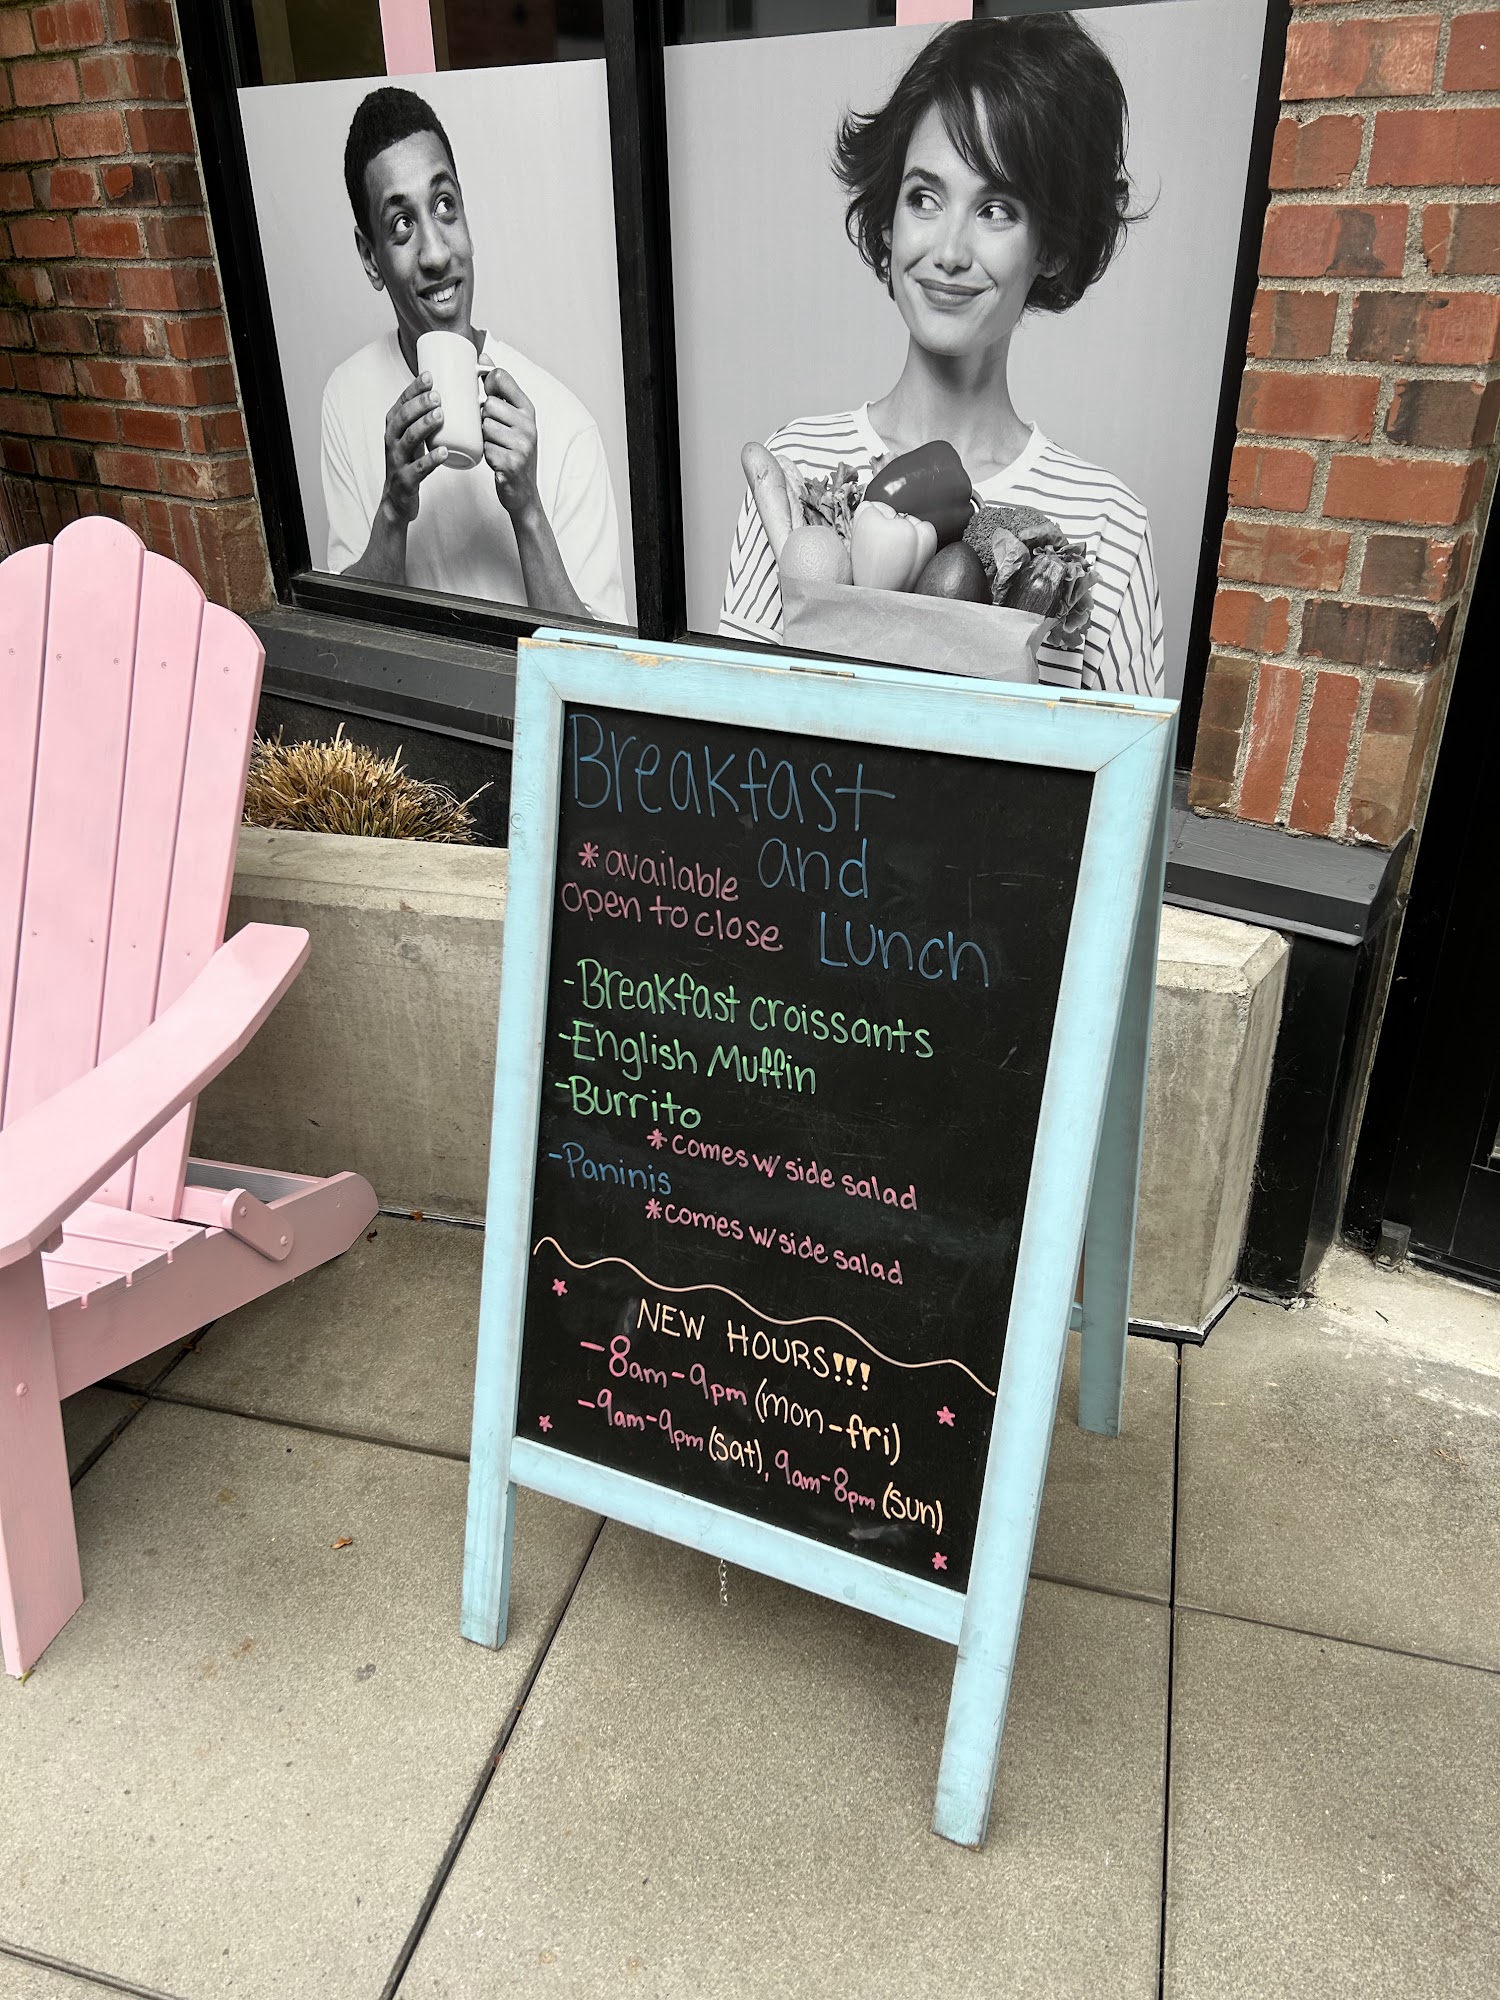 Breakfast
and
Lunch
*available
open to close
-Breakfast croissants
-English Muffin
-Burrito
*comes w/ side salad
-Paninis
*comes w/ side salad
NEW HOURS!!!
-8am-9pm (mon-fri)
-9am-9pm (sat), 9am-8pm (sun)